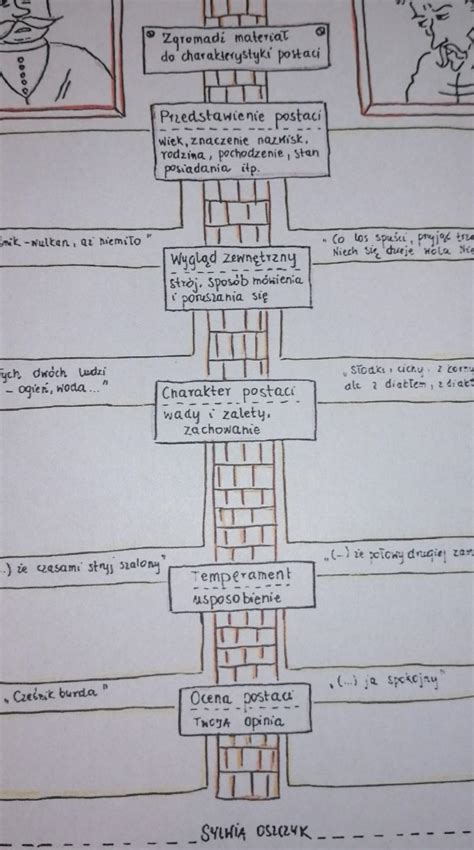 Zgromadź materiał
do charakterystyki postaci
Przedstawienie postaci
wiek, znaczenie nazwisk,
rodzina, pochodzenie, stan
posiadania itp.
śnik-wulkan, aż niemiło"
„Co los spuści, przyjąć trze
Niech się dzieje wola
Wygląd zewnętrzny
strój, sposób mówienia
i poruszania się
tych dwóch ludzi
- ogień, woda..."
„Słodki, cichy, z
ale z diabłem, z diab
Charakter postaci
wady i zalety,
zachowanie
..) że czasami stryj szalony"
„(-) że połowy drugiej
Temperament
usposobienie
„Cześnik burda"
„(...) ja spokojny"
Ocena postaci
TWOJA opinia
SYLWIA OSZCZYK